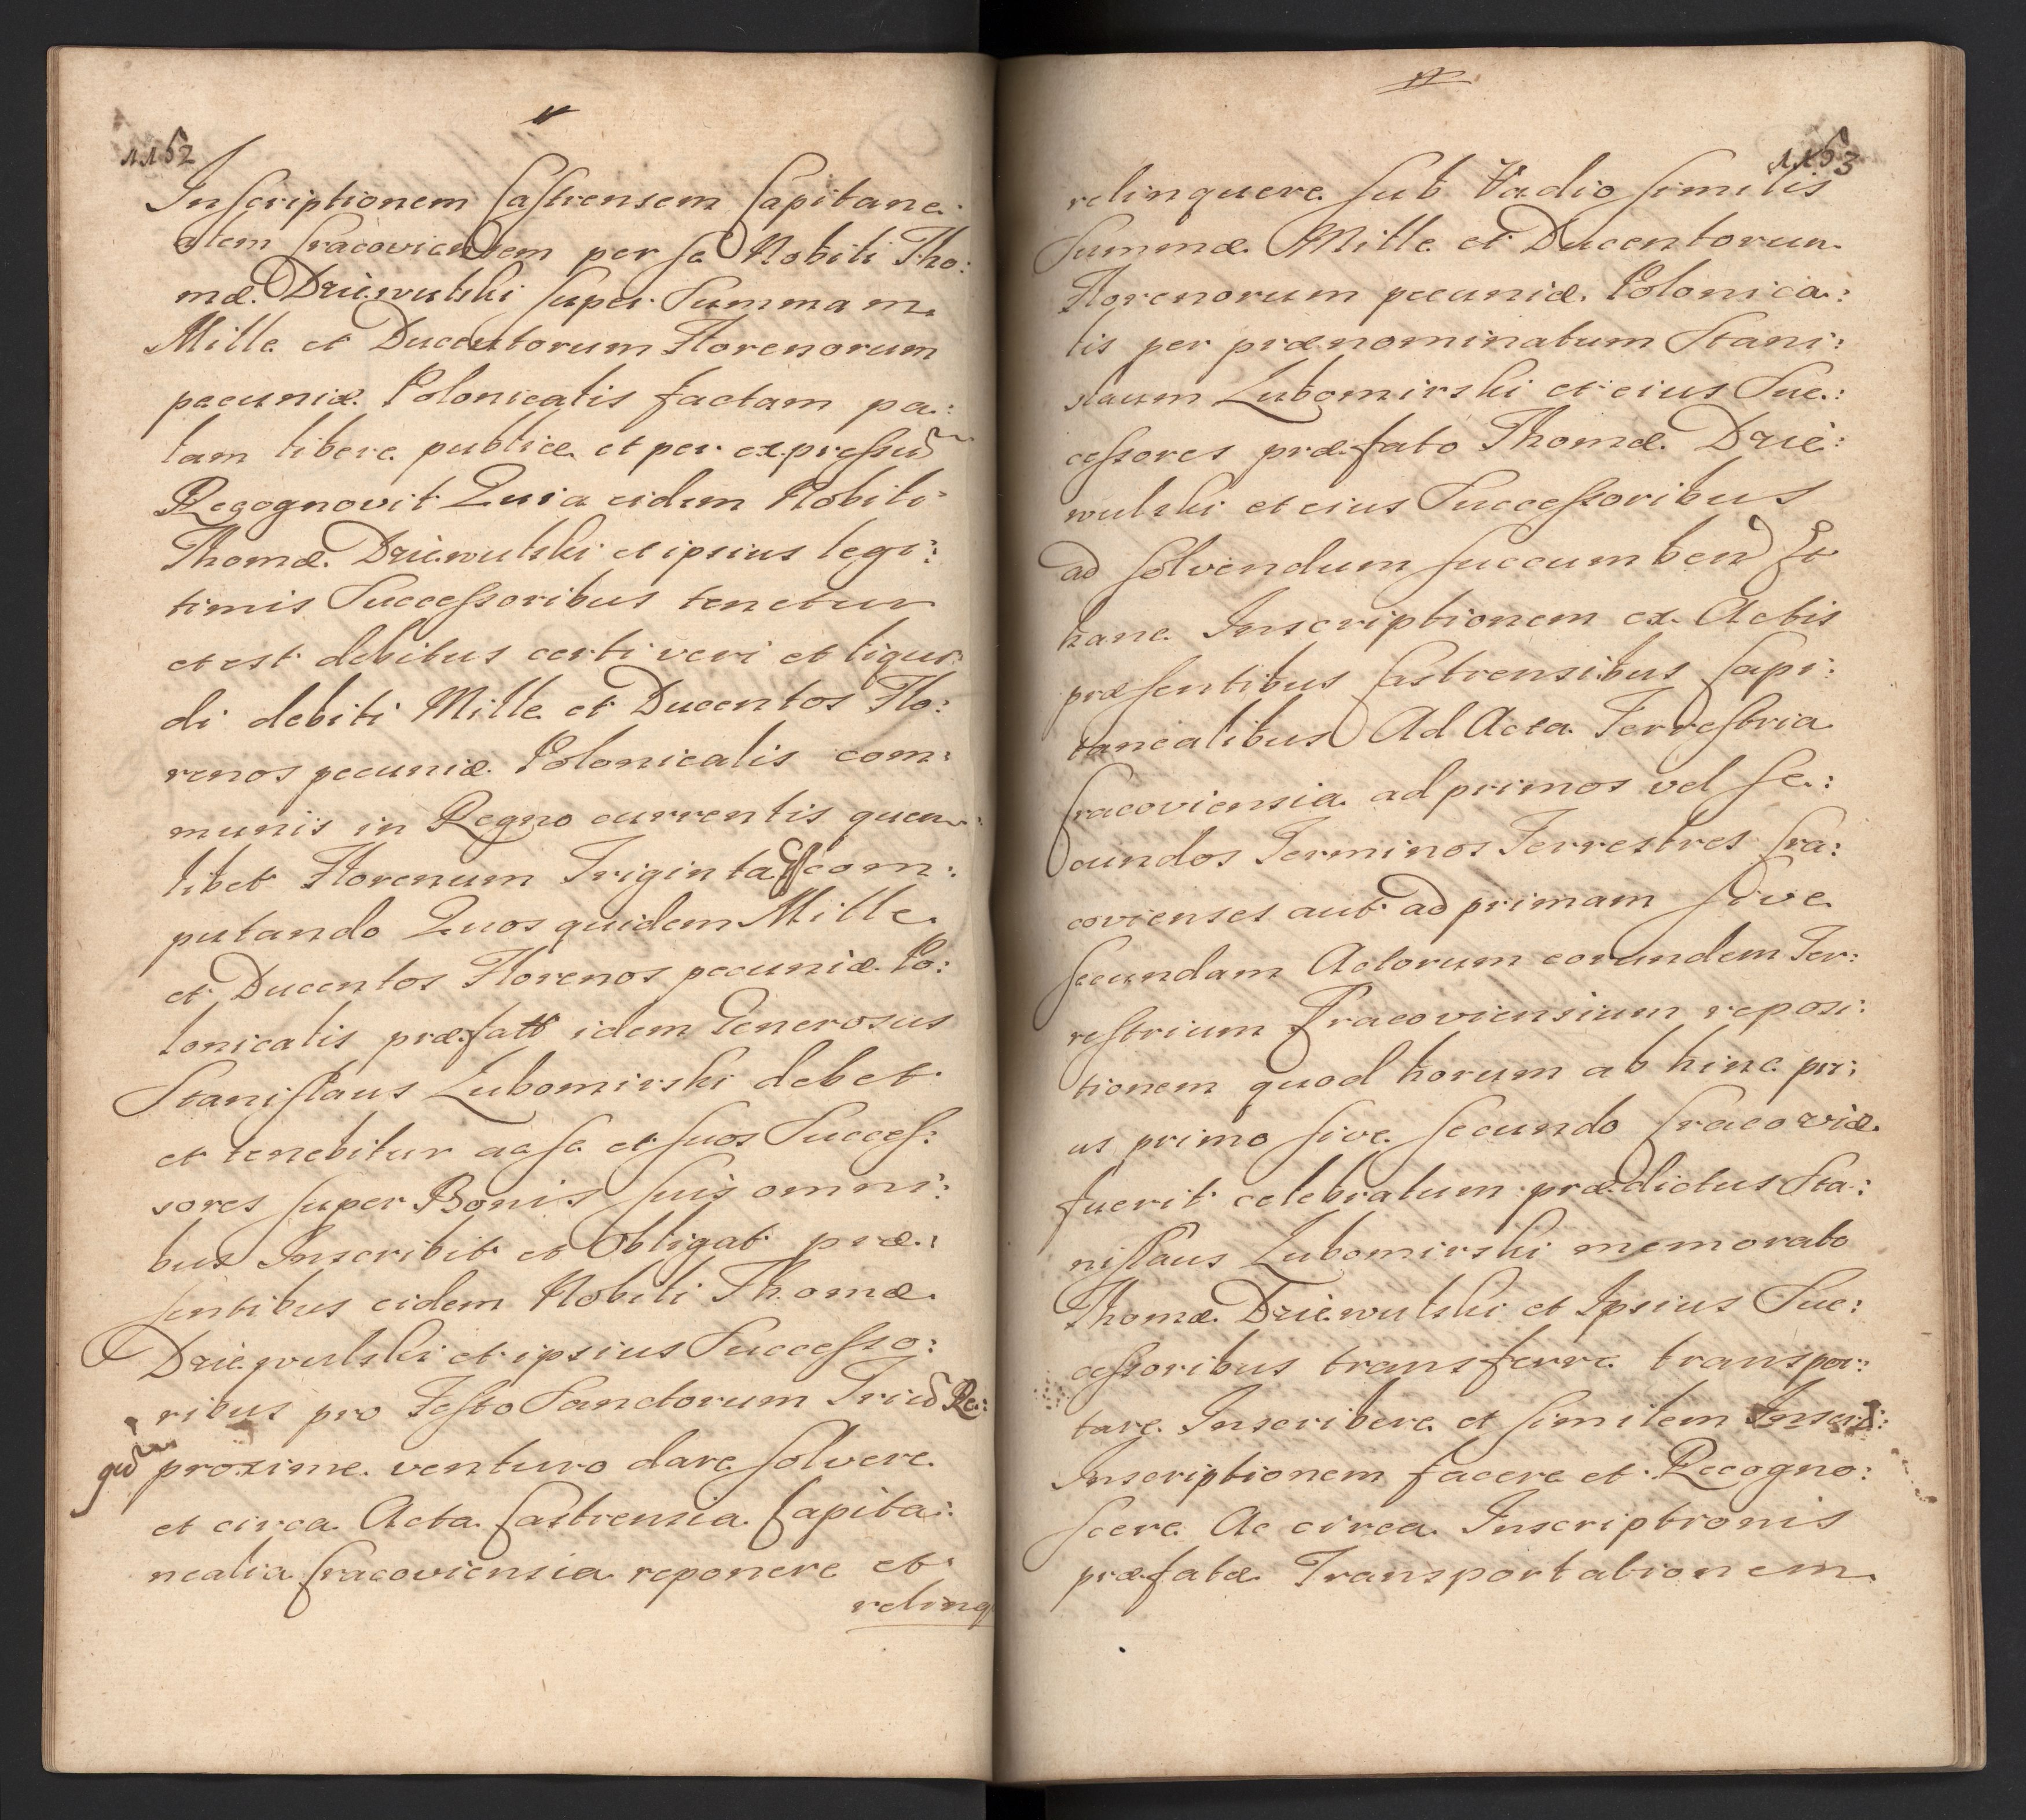 1152
Inscriptionem Castrensem Capitane:
alem Cracoviensem per se Nobili Tho:
mæ Dziewulski super Summam
Mille et Ducentorum Florenorum
pecuniæ Polonicalis factam pa:
lam libere publice et per expressũ
Recognovit Quia eidem Nobili
Thomæ Dziewulski et ipsius legi:
timis Successoribus tenetur
et est debitus certi veri et liqui:
di debiti Mille et Ducentos Flo:
renos pecuniæ Polonicalis com:
munis in Regno currentis quem:
libet Florenum Triginta com:
putando Quos quidem Mille
et Ducentos Florenos pecuniæ Po:
lonicalis præfatt idem Generosus
Stanislaus Lubomirski debet
et tenebitur ac se et suos Succes:
sores super Bonis suis omni:
bus Inscribit et Obligat præ:
sentibus eidem Nobili Thomæ
Dziewulski et ipsius Successo:
ribus pro Festo Sanctorum Triũ Re:
gũ proxime venturo dare solvere
et circa Acta Castrensia Capita:
nealia Cracoviensia reponere et
relinq
1153
relinquere sub Vadio similis
Summæ Mille et Ducentorum
Florenorum pecuniæ Polonica:
lis per prænominatum Stani:
slaum Lubomirski et eius Suc:
cessores præfato Thomæ Dzie:
wulski et eius Successoribus
ad solvendum succumbend Et
hanc Inscriptionem ex Actis
præsentibus Castrensibus Capi:
tanealibus Ad Acta Terrestria
Cracoviensia ad primos vel se:
cundos Terminos Terrestres Cra:
covienses aut ad primam sive
secundam Actorum eorundem Ter:
restrium Cracoviensium reposi:
tionem quod horum ab hinc pri:
us primo sive secundo Cracoviæ
fuerit celebratum prædictus Sta:
nislaus Lubomirski memorato
Thomæ Dziewulski et Ipsius Suc:
cessoribus transferre transpor:
tare Inscribere et similem Inscri:
Inscriptionem facere et Recogno:
scere Ac circa Inscriptionis
præfatæ Transportationem